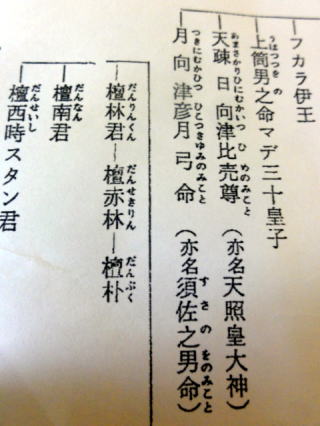 フカラ伊王
上筒男之命マデ三十皇子
うはつつをの
天疎日向津比売尊(亦名天照皇大神)
あまさかりひにむかいつひめのみこと
月向津彦月弓命(亦名須佐之男命)
つきにむかひつひこつきゆみのみこと すさのをのみこと
檀林君―檀赤林―檀朴
だんりんくん だんせきりん だんぶく
檀南君
だんなん
檀西時スタン君
だんせいし